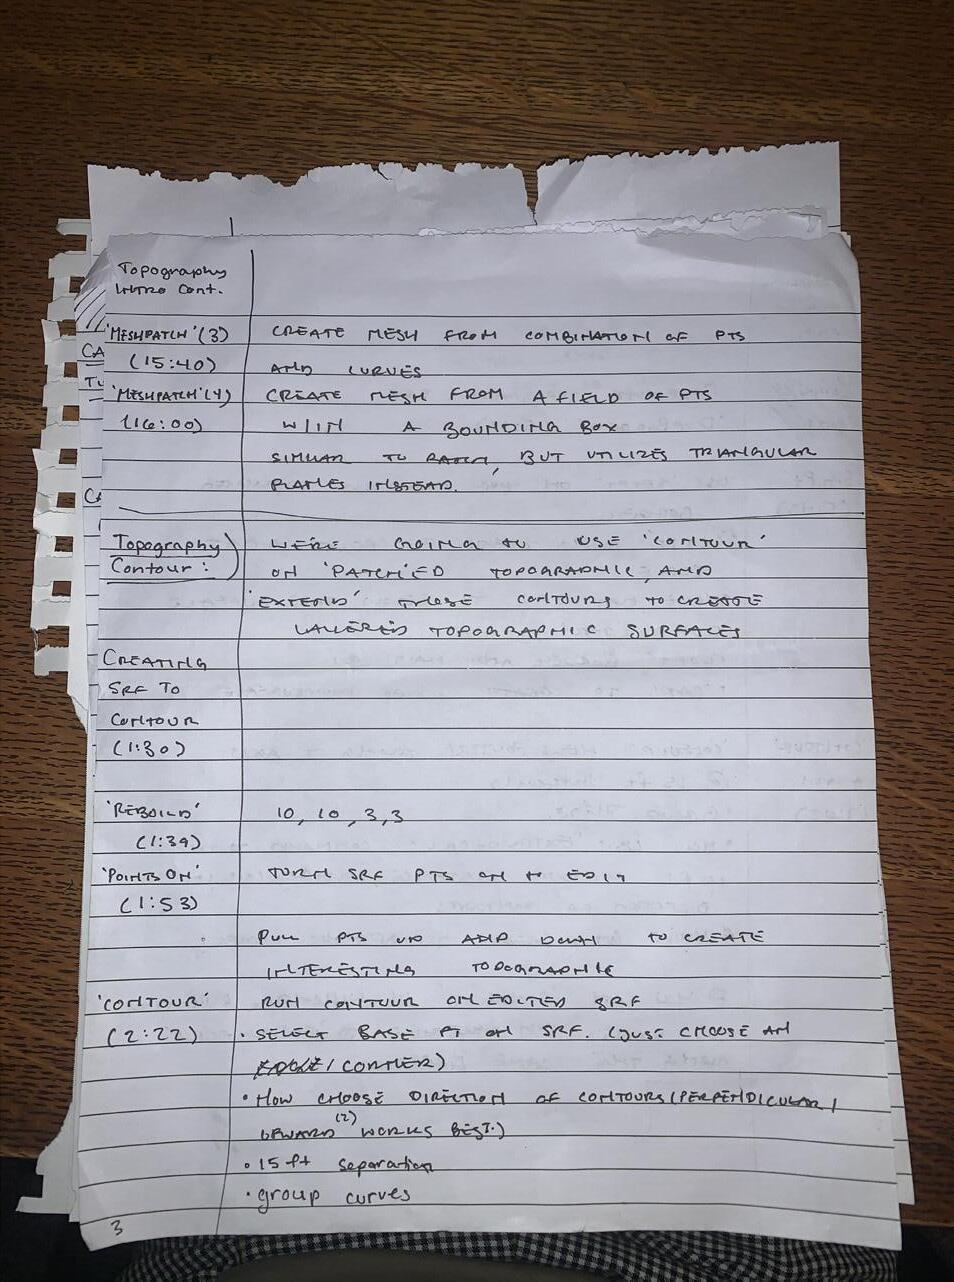 Topography
Intro Cont.
'MESHPATCH' (3) CREATE MESH FROM COMBINATION OF PTS
(15:40) AND CURVES
'MESHPATCH' (4) CREATE MESH FROM A FIELD OF PTS
(16:00) W/IN A BOUNDING BOX
SIMILAR TO PATCH, BUT UTILIZES TRIANGULAR
PLANES INSTEAD.
CA
TU
CA
Topography WE'RE GOING TO USE 'CONTOUR'
Contour: ON 'PATCH'ED TOPOGRAPHIC, AND
'EXTEND' THOSE CONTOURS TO CREATE
LAYERED TOPOGRAPHIC SURFACES
CREATING
SRF TO
CONTOUR
(1:30)
'REBUILD' 10, 10, 3, 3
(1:39)
'POINTS ON' TURN SRF PTS ON TO EDIT
(1:53)
PULL PTS UP AND DOWN TO CREATE
INTERESTING TOPOGRAPHIC
'CONTOUR' RUN CONTOUR ON EDITED SRF
(2:22) • SELECT BASE PT ON SRF. (JUST CHOOSE AN
EDGE / CORNER)
• NOW CHOOSE DIRECTION OF CONTOURS (PERPENDICULAR /
UPWARD (Z) WORKS BEST.)
• 15 ft separation
• group curves
3